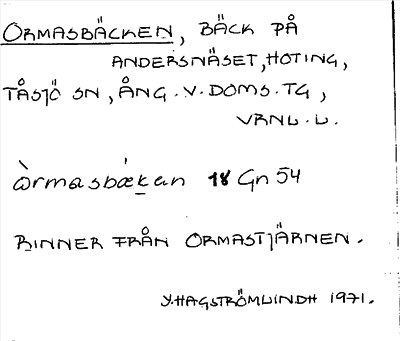 ORMASBÄCKEN, BÄCK PÅ
ANDERSNÄSET, HOTING,
TÅSJÖ SN, ÅNG.V.DOMS.TG,
VRNL.L.
òrmasbǽk̲an 18 Gn 54
RINNER FRÅN ORMASTJÄRNEN.
Y.HAGSTRÖMLINDH 1971.